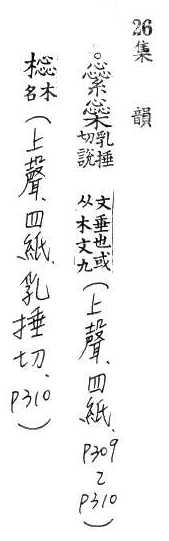 26 集韻
○繠橤 乳捶切說文垂也或从木文九(上聲、四紙、p309 p310)
木名(上聲、四紙、乳捶切、p310)